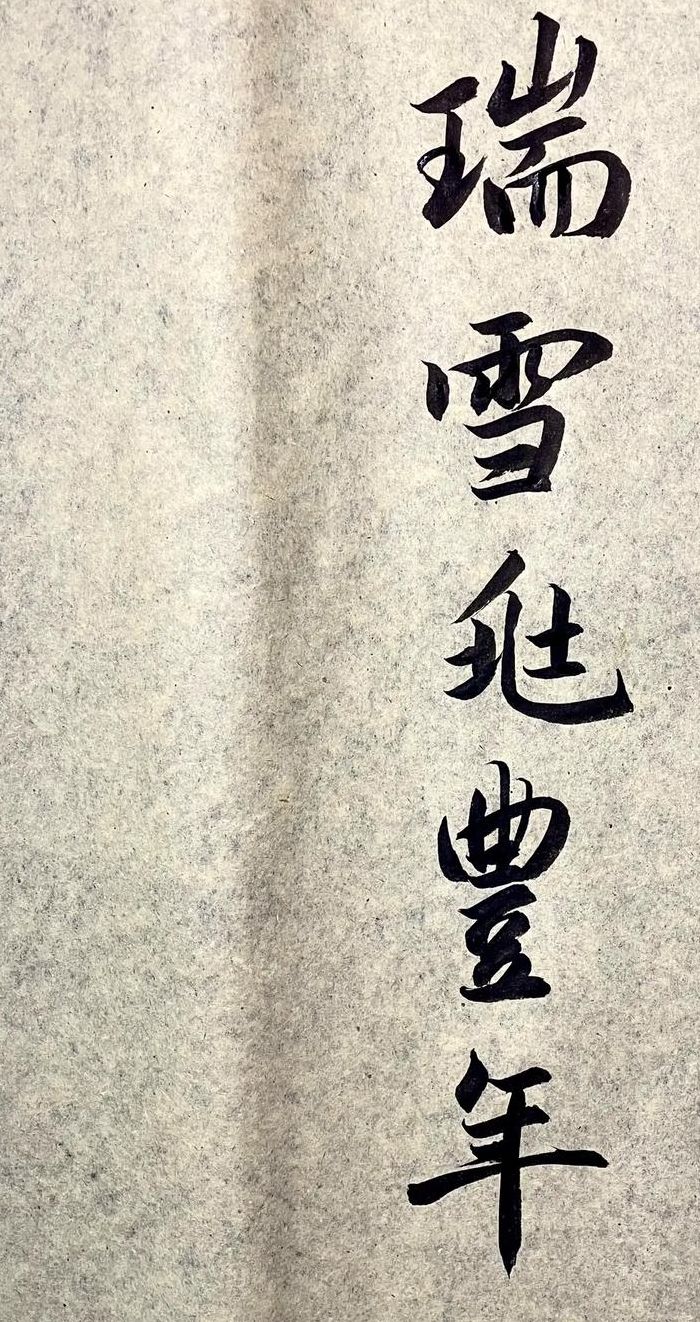 瑞雪兆豐年